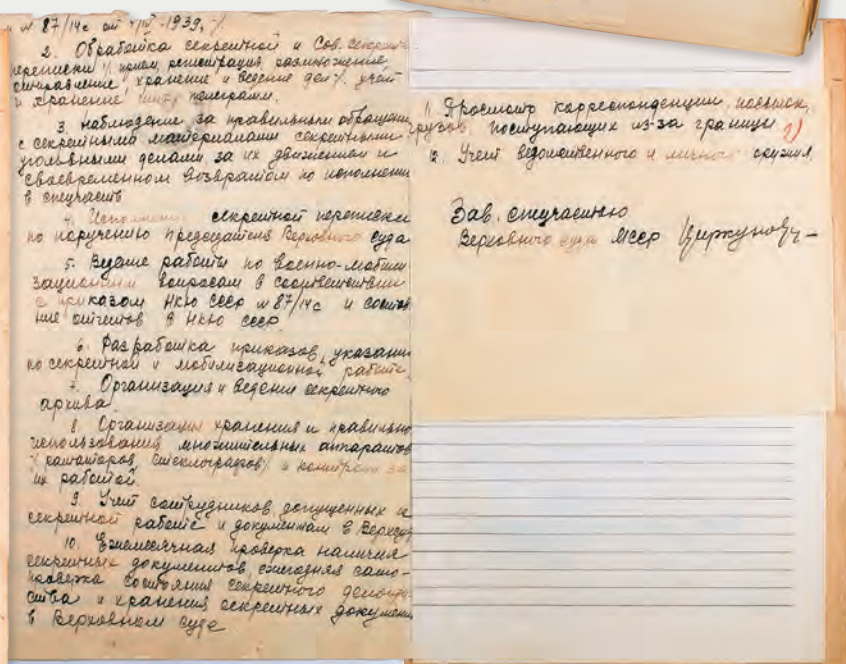 № 87/14с от 4/IV-1939,
2. Обработка секретной и Сов. секретн
переписки /прием, регистрация, размножение,
отправление, хранение и ведение дел/. учет
и хранение шифр телеграмм.
3. Наблюдение за правильным обращени
с секретными материалами секретными
уголовными делами за их движением и
своевременном возвратом по исполнении
в спецчасть
4. Исполнени секретной переписки
по поручению Председателя Верховного суда
5. Ведение работы по военно-мобили
зационным вопросам в соответствии
с приказом НКЮ СССР №87/14с и составл
ние отчетов в НКЮ СССР
6. Разработка приказов, указани
по секретной и мобилизационной работе,
7. Организация и ведения секретного
архива.
8. Организация хранения и правильно
использования множительных аппаратов
/ротаторов, стеклографов/ и контроль за
их работой.
9. Учет сотрудников допущенных к
секретной работе и документам в Верхсуд
10. Ежемесячная проверка наличия
секретных документов, ежегодняя само-
проверка состояния секретного делопр
ства и хранения секретных документ
в Верховном суде
11. Просмотр корреспонденции, посылок,
грузов поступающих из-за границы
12. Учет ведомственного и личного оружия.
Зав. спецчастью
Верховного суда МССР